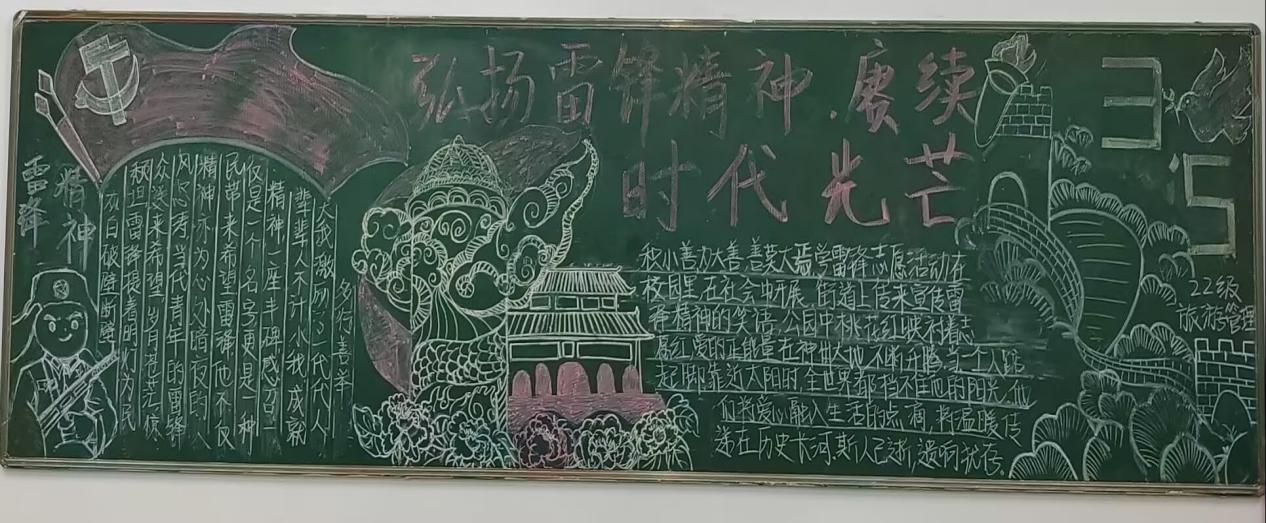 弘扬雷锋精神,赓续
时代光芒
3
5
雷锋
精神
22级
旅游管理
多行善举
大我激励了一代代人
辈辈人不计小我成就
精神一座丰碑感召一
仅是一个名字更是一种
民带来希望雷锋他不仅
精神亦为心外暗夜的人
风尽寿当代青年的雷锋
众送来希望岁月茫茫
雷锋提着明灯为民
破障断
积小善为大善善莫大焉学雷锋志愿活动在
校园里在社会中开展,街道上传来宣传雷
锋精神的笑语,公园中桃花红映衬着志
愿红,爱的正能量在神州大地不断升腾,当一个人踮
起脚靠近太阳时,全世界都挡不住他的阳光,他
们将爱心融入生活的点滴,将温暖传
递在历史长河,斯人已逝,遗响犹存。